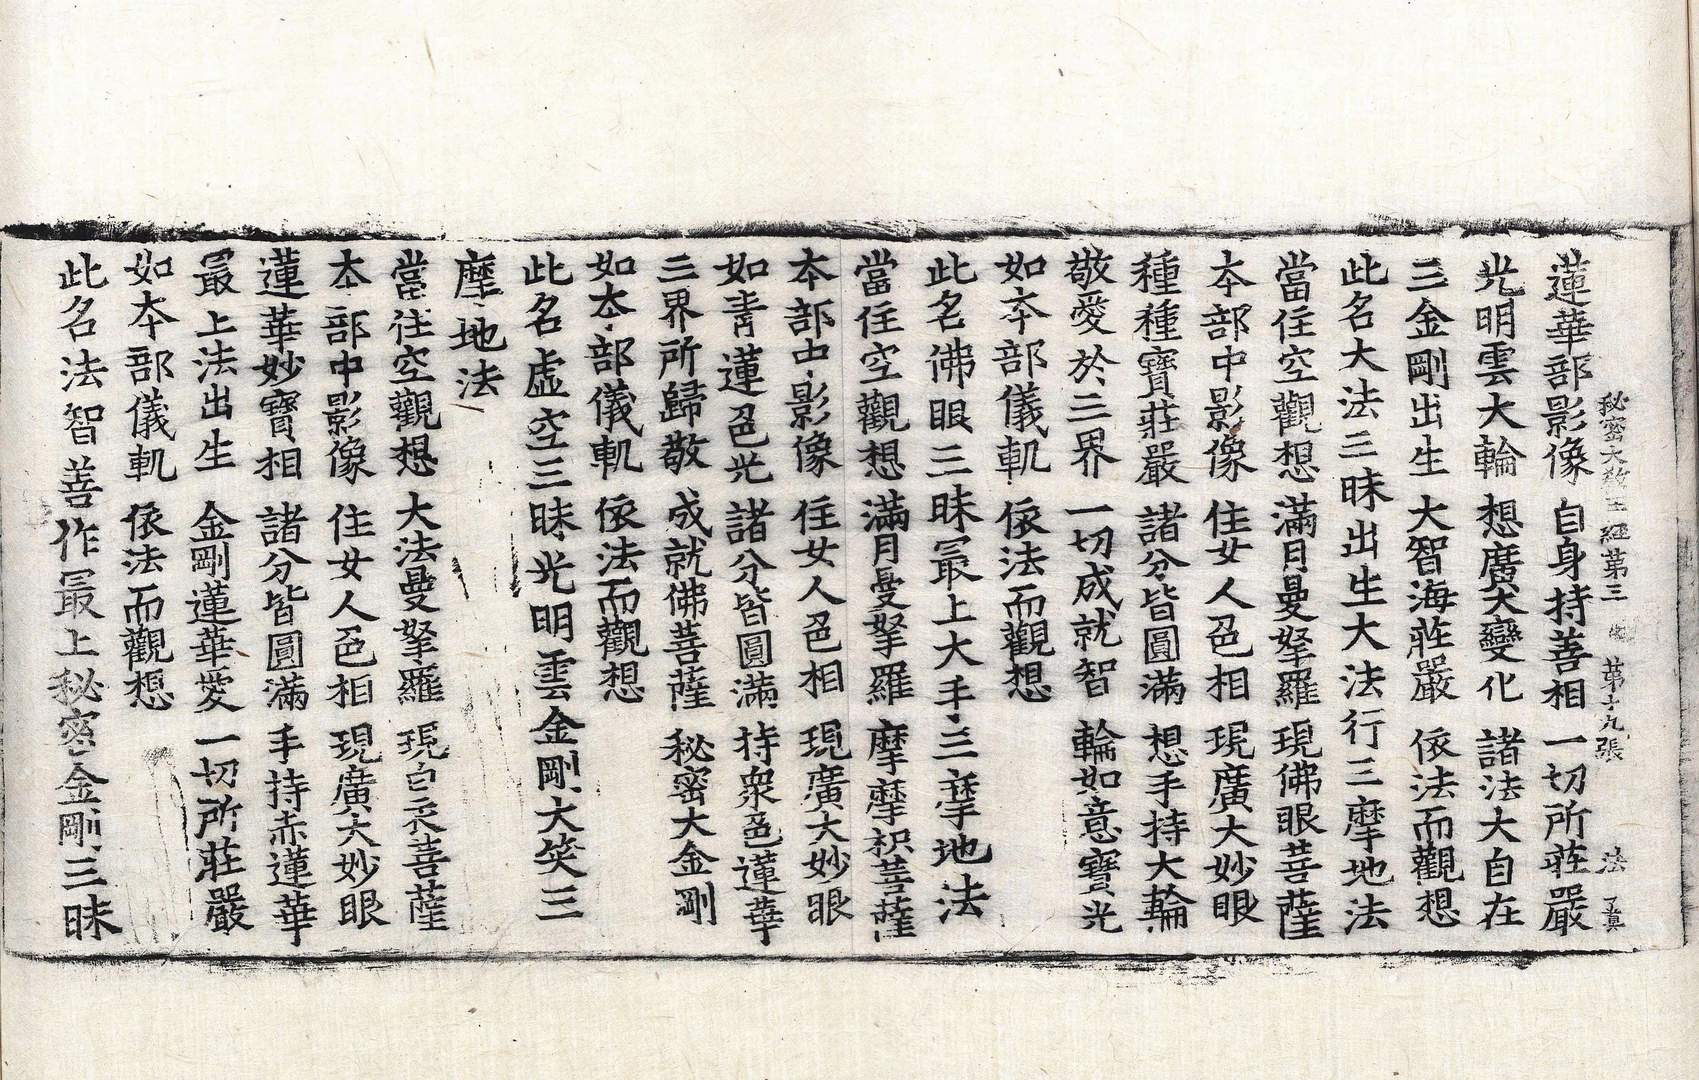 秘密大教王經第三 第十九張 法 了真
蓮華部影像 自身持善相 一切所莊嚴
光明雲大輪 想廣大變化 諸法大自在
三金剛出生 大智海莊嚴 依法而觀想
此名大法三昧出生大法行三摩地法
當住空觀想 滿月曼拏羅 現佛眼菩薩
本部中影像 住女人色相 現廣大妙眼
種種寶莊嚴 諸分皆圓滿 想手持大輪
敬愛於三界 一切成就智 輪如意寶光
如本部儀軌 依法而觀想
此名佛眼三昧最上大手三摩地法
當住空觀想 滿月曼拏羅 摩摩枳菩薩
本部中影像 住女人色相 現廣大妙眼
如青蓮色光 諸分皆圓滿 持衆色蓮華
三界所歸敬 成就佛菩薩 秘密大金剛
如本部儀軌 依法而觀想
此名虛空三昧光明雲金剛大笑三
摩地法
當住空觀想 大法曼拏羅 現白衣菩薩
本部中影像 住女人色相 現廣大妙眼
蓮華妙寶相 諸分皆圓滿 手持赤蓮華
最上法出生 金剛蓮華愛 一切所莊嚴
如本部儀軌 依法而觀想
此名法智善作最上秘密金剛三昧